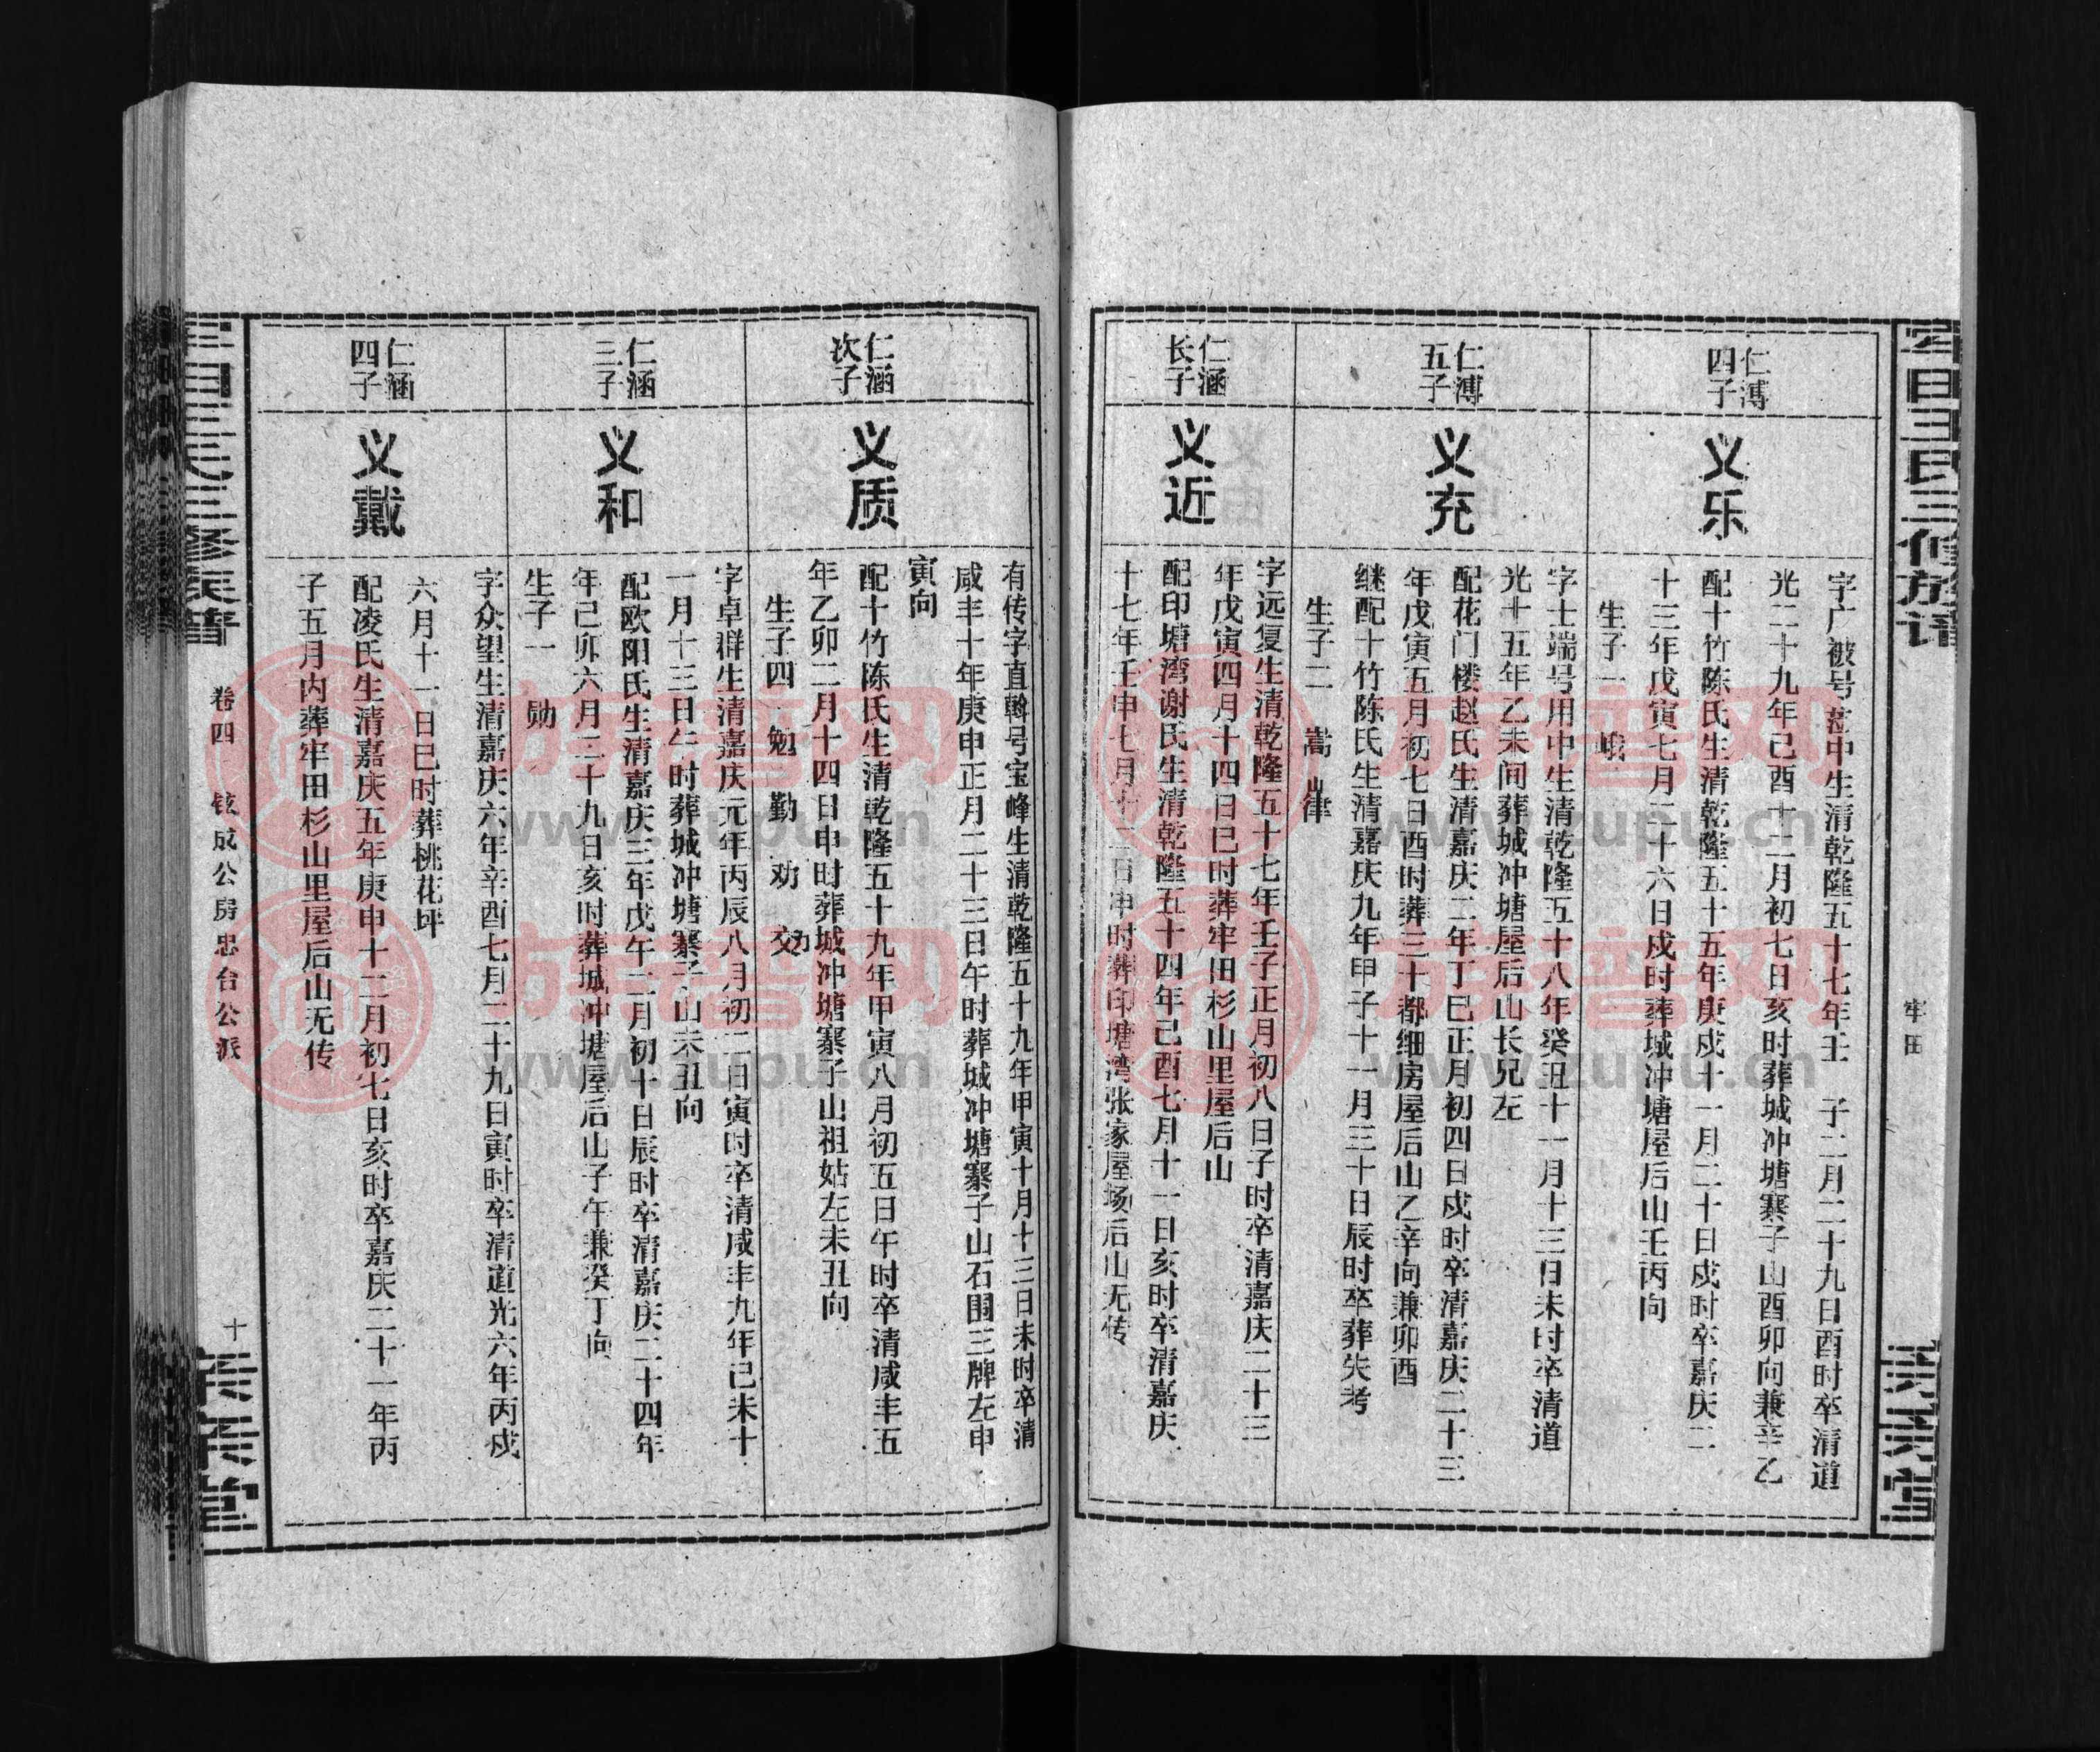 牢田王氏三修族谱
牢田
仁溥
四子
义乐
字广被号莅中生清乾隆五十七年壬子二月二十九日酉时卒清道
光二十九年己酉十二月初七日亥时葬城冲塘寨子山酉卯向兼辛乙
配十竹陈氏生清乾隆五十五年庚戍十一月二十日戍时卒嘉庆二
十三年戊寅七月二十六日戍时葬城冲塘屋后山壬丙向
生子一 峨
仁溥
五子
义充
字士端号用中生清乾隆五十八年癸丑十一月十三日未时卒清道
光十五年乙未间葬城冲塘屋后山长兄左
配花门楼赵氏生清嘉庆二年丁巳正月初四日戍时卒清嘉庆二十三
年戊寅五月初七日酉时葬三十都细房屋后山乙辛向兼卯酉
继配十竹陈氏生清嘉庆九年甲子十一月三十日辰时卒葬失考
生子二 嵩
仁涵
长子
义近
字远复生清乾隆五十七年壬子正月初八日子时卒清嘉庆二十三
年戊寅四月十四日巳时葬牢田杉山里屋后山
配印塘湾谢氏生清乾隆五十四年己酉七月十一日亥时卒清嘉庆
十七年壬申七月十二日申时葬印塘湾张家屋场后山无传
仁涵
次子
义质
有传字直斡号宝峰生清乾隆五十九年甲寅十月十三日未时卒清
咸丰十年庚申正月二十三日午时葬城冲塘寨子山石围三牌左申
寅向
配十竹陈氏生清乾隆五十九年甲寅八月初五日午时卒清咸丰五
年乙卯二月十四日申时葬城冲塘寨子山祖姑左未丑向
生子四 勉 勤 劝 効
仁涵
三子
义和
字卓群生清嘉庆元年丙辰八月初二日寅时卒清咸丰九年己未十
一月十三日午时葬城冲塘寨子山未丑向
配欧阳氏生清嘉庆三年戊午二月初十日辰时卒清嘉庆二十四年
年己卯六月二十九日亥时葬城冲塘屋后山子午兼癸丁向
生子一 勋
仁涵
四子
义戴
字众望生清嘉庆六年辛酉七月二十九日寅时卒清道光六年丙戍
六月十一日巳时葬桃花坪
配凌氏生清嘉庆五年庚申十二月初七日亥时卒嘉庆二十一年丙
子五月内葬牢田杉山里屋后山无传
牢田王氏三修族谱
卷四 铉成公房忠台公派
十
族谱网
www.zupu.cn
族谱网
www.zupu.cn
族谱网
www.zupu.cn
族谱网
www.zupu.cn